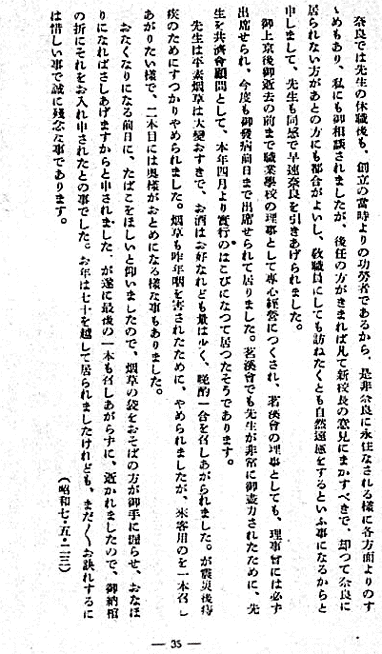 奈良では先生の休職後も、創立の當時よりの功勞者であるから、是非奈良に永住なされる樣に各方面よりのす
ゝめもあり、私にも御相談されましたが、後任の方がきまれば凡て新校長の意見にまかすべきで、却つて奈良に
居られない方があとの方にも都合がよいし、敎職員にしても訪ねたくとも自然遠慮をするといふ事になるからと
申しまして、先生も同感で早速奈良を引きあげられました。
御上京後御逝去の前まで職業學校の理事として專心經營につくされ、茗溪會の理事としても、理事會には必ず
出席せられ、今度も御發病前日まで出席せられて居りました。茗溪會でも先生が非常に御盡力されたために、先
生を共濟會顧問として、本年四月より實行のはこびになつて居つたそうであります。
先生は平素烟草は大變おすきで、お酒はお好なれども量はルく、晩酌一合を召しあがられました。が震災後痔
疾のためにすつかりやめられました。烟草も昨年咽を害されたために、やめられましたが、來客用のを一本召し
あがりたい樣で、二本目には奥樣がおとめになる樣な事もありました。
おたくなりになる前日に、たばこをほしいと仰いましたので、烟草の袋をおそばの方が御手に握らせ、おなほ
りになればさしあげますからと申されました、が遂に最後の一本も召しあがらずに、逝かれましたので、御納棺
の折にそれをお入れ申されたとの事でした。お年は七十を越して居られましたけれども、まだ〳〵お訣れするに
は惜しい事で誠に殘念な事であります。
(昭和七・五・二三)
— 35 —